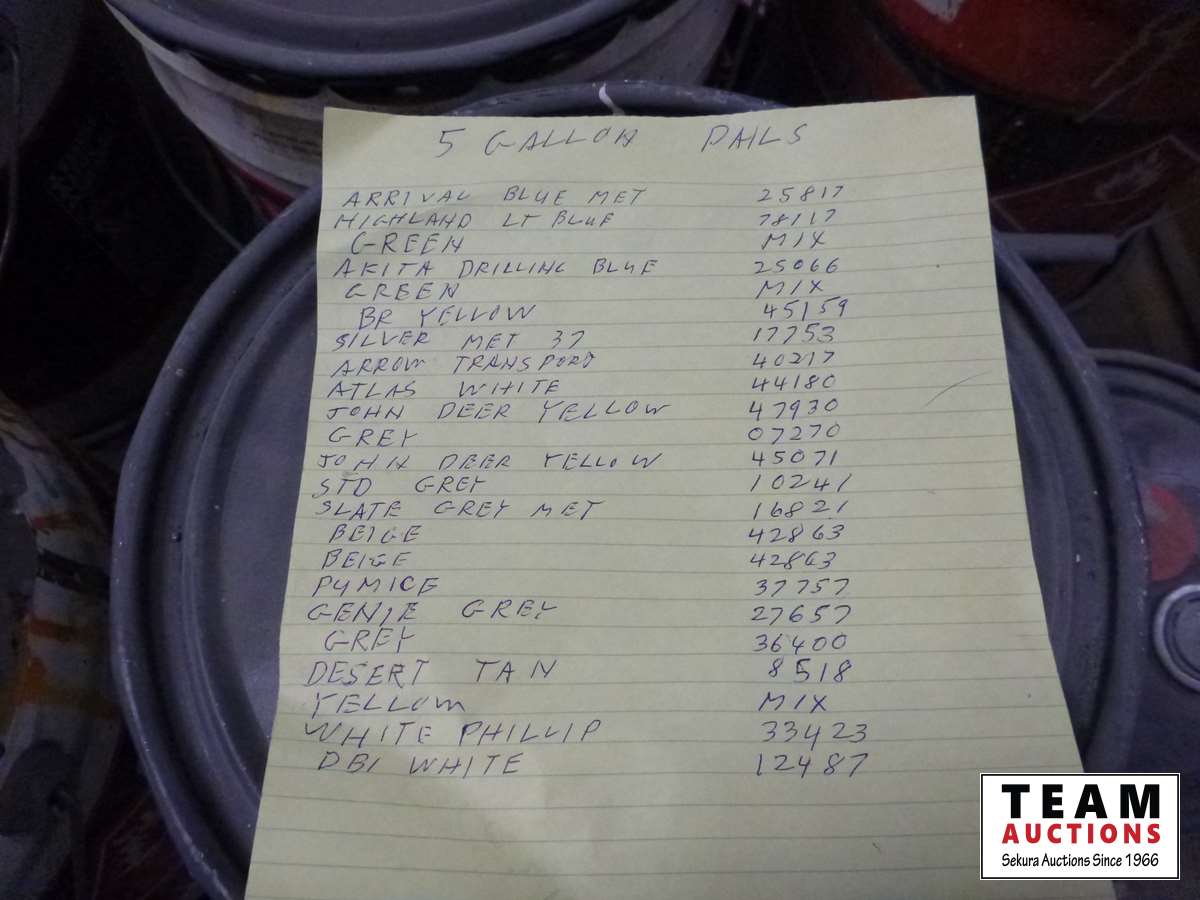 5 GALLON PAILS
ARRIVAL BLUE MET 25817
HIGHLAND LT BLUE 78117
GREEN MIX
AKITA DRILLING BLUE 25066
GREEN MIX
BR YELLOW 45159
SILVER MET 37 17753
ARROW TRANSPORT 40217
ATLAS WHITE 44180
JOHN DEER YELLOW 47930
GREY 07270
JOHN DEER YELLOW 45071
STD GREY 10241
SLATE GREY MET 16821
BEIGE 42863
BEIGE 42863
PUMICE 37757
GENIE GREY 27657
GREY 36400
DESERT TAN 8518
YELLOW MIX
WHITE PHILLIP 33423
DBI WHITE 12487
TEAM
AUCTIONS
Sekura Auctions Since 1966